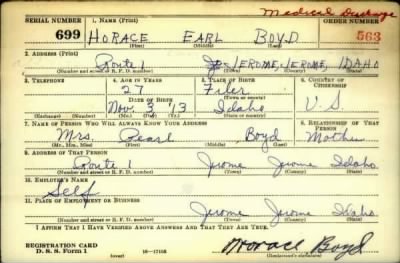 Medical Discharge
SERIAL NUMBER 1. NAME (Print) ORDER NUMBER
699 HORACE EARL BOYD 563
(First) (Middle) (Last)
2. ADDRESS (Print)
Route 1 JEROME, JEROME, IDAHO
(Number and street or R. F. D. number) (Town) (County) (State)
3. TELEPHONE 4. AGE IN YEARS 5. PLACE OF BIRTH 6. COUNTRY OF CITIZENSHIP
27 Filer
(Town or county)
DATE OF BIRTH
Nov. 3 '13 Idaho U S
(Exchange) (Number) (Mo.) (Day) (Yr.) (State or country)
7. NAME OF PERSON WHO WILL ALWAYS KNOW YOUR ADDRESS 8. RELATIONSHIP OF THAT PERSON
Mrs. Pearl Boyd Mother
(Mr., Mrs., Miss) (First) (Middle) (Last)
9. ADDRESS OF THAT PERSON
Route 1 Jerome Jerome Idaho
(Number and street or R. F. D. number) (Town) (County) (State)
10. EMPLOYER'S NAME
Self
11. PLACE OF EMPLOYMENT OR BUSINESS
Jerome Jerome Idaho
(Number and street or R. F. D. number) (Town) (County) (State)
I AFFIRM THAT I HAVE VERIFIED ABOVE ANSWERS AND THAT THEY ARE TRUE.
REGISTRATION CARD
D. S. S. Form 1 (over) 16—17105 Horace Boyd
(Registrant's signature)